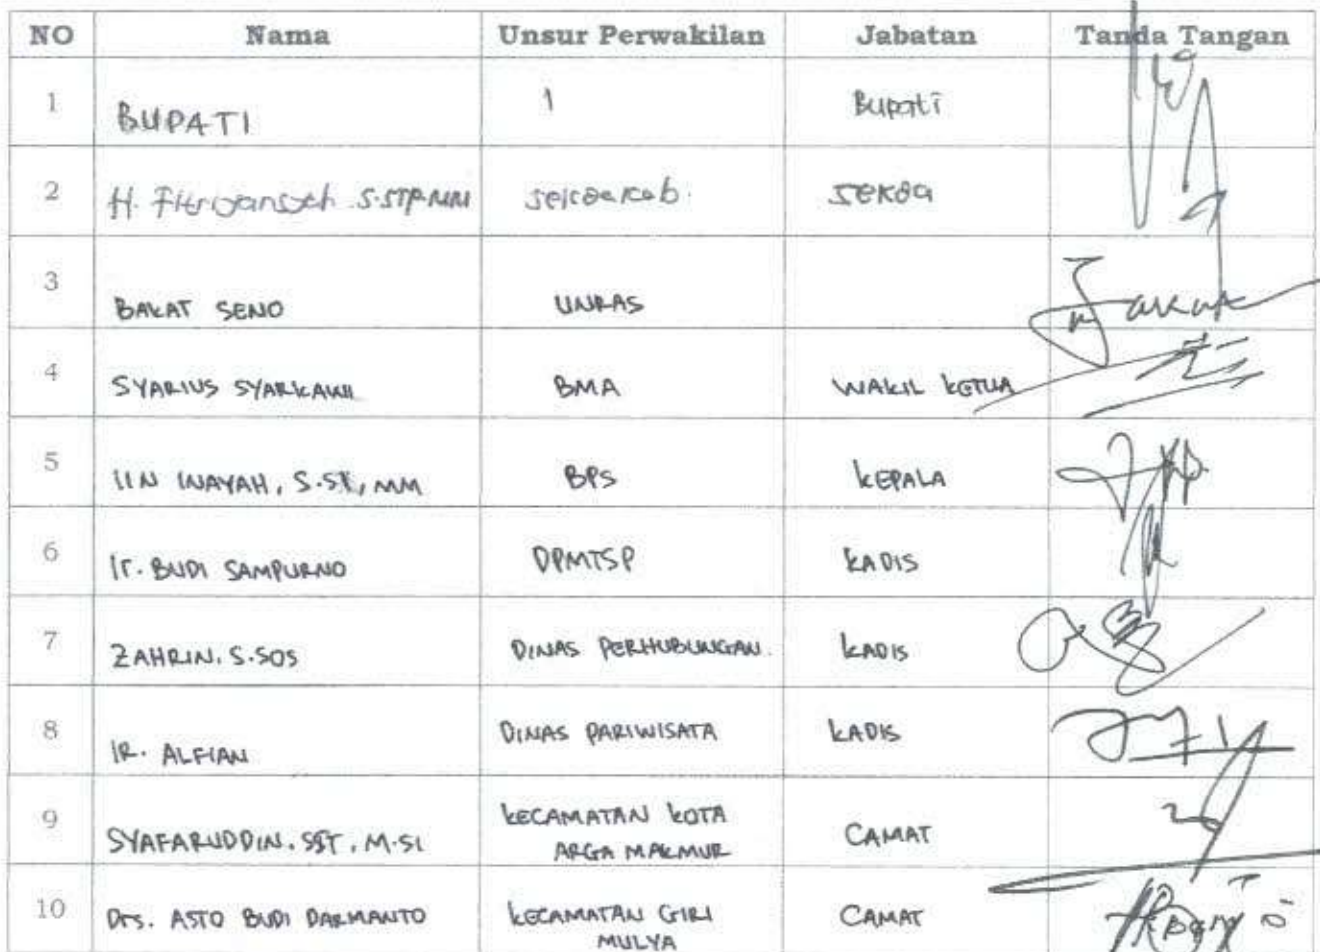 NO Nama Unsur Perwakilan Jabatan Tanda Tangan
1 BUPATI 1 Bupati
2 H. Fitriyansyah S.STP.MM Sekdakab. SEKDA
3 BAKAT SENO UNRAS
4 SYARIUS SYARKAWI BMA WAKIL KETUA
5 IIN INAYAH, S.ST, MM BPS KEPALA
6 Ir. BUDI SAMPURNO DPMTSP KADIS
7 ZAHRIN. S.SOS DINAS PERHUBUNGAN. KADIS
8 IR. ALFIAN DINAS PARIWISATA KADIS
9 SYAFARUDDIN. SST, M.SI KECAMATAN KOTA CAMAT
ARGA MAKMUR
10 Drs. ASTO BUDI DARMANTO KECAMATAN GIRI CAMAT
MULYA